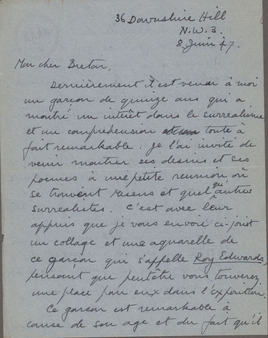 36 Downshire Hill
N.W.3.
8 Juin 47.
Mon cher Breton,
Dernièrement il est venu à moi
un garçon de quinze ans qui a
montré un intérêt dans le surrealisme
et un comprehension toute à
fait remarquable: je l'ai invité de
venir montrer ses dessins et ses
poemes à une petite reunion où
se trouvent reunis et quelques autres
surrealistes. C'est avec leur
appuis que je vous envoie ci-joint
un collage et une aquarelle de
ce garçon qui s'appelle Roy Edwards,
pensant que peutetre vous trouverez
une place pour eux dans l'exposition.
Ce garçon est remarquable à
cause de son age et du fait qu'il